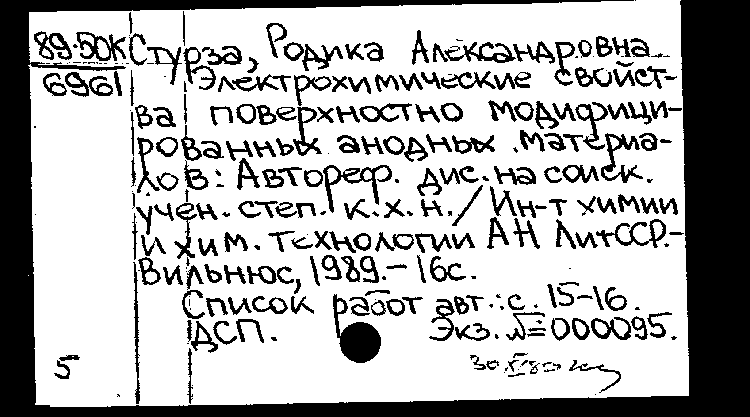 89-50К Стурза, Родика Александровна.
6961 Электрохимические свойст-
ва поверхностно модифици-
рованных анодных материа-
лов: Автореф. дис. на соиск.
учен. степ. к.х.н. / Ин-т химии
и хим. технологии АН ЛитССР.-
Вильнюс, 1989.- 16с.
Список работ авт.: с. 15-16.
ДСП. Экз. № 000095.
5